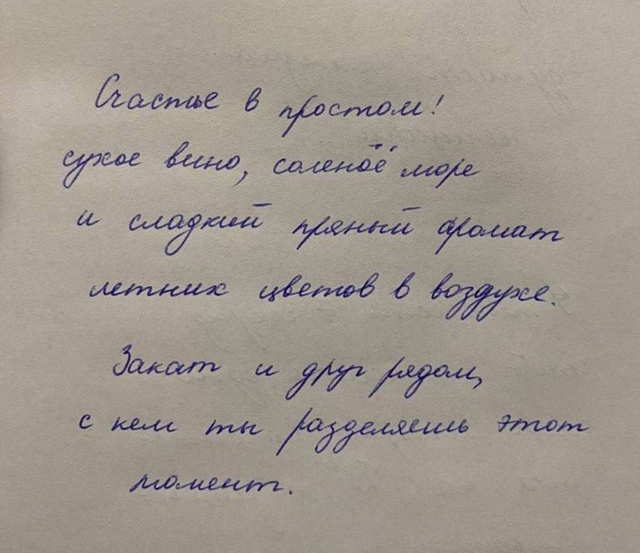 Счастье в простом!
сухое вино, солёное море
и сладкий пряный аромат
летних цветов в воздухе.
Закат и друг рядом,
с кем ты разделяешь этот
момент.